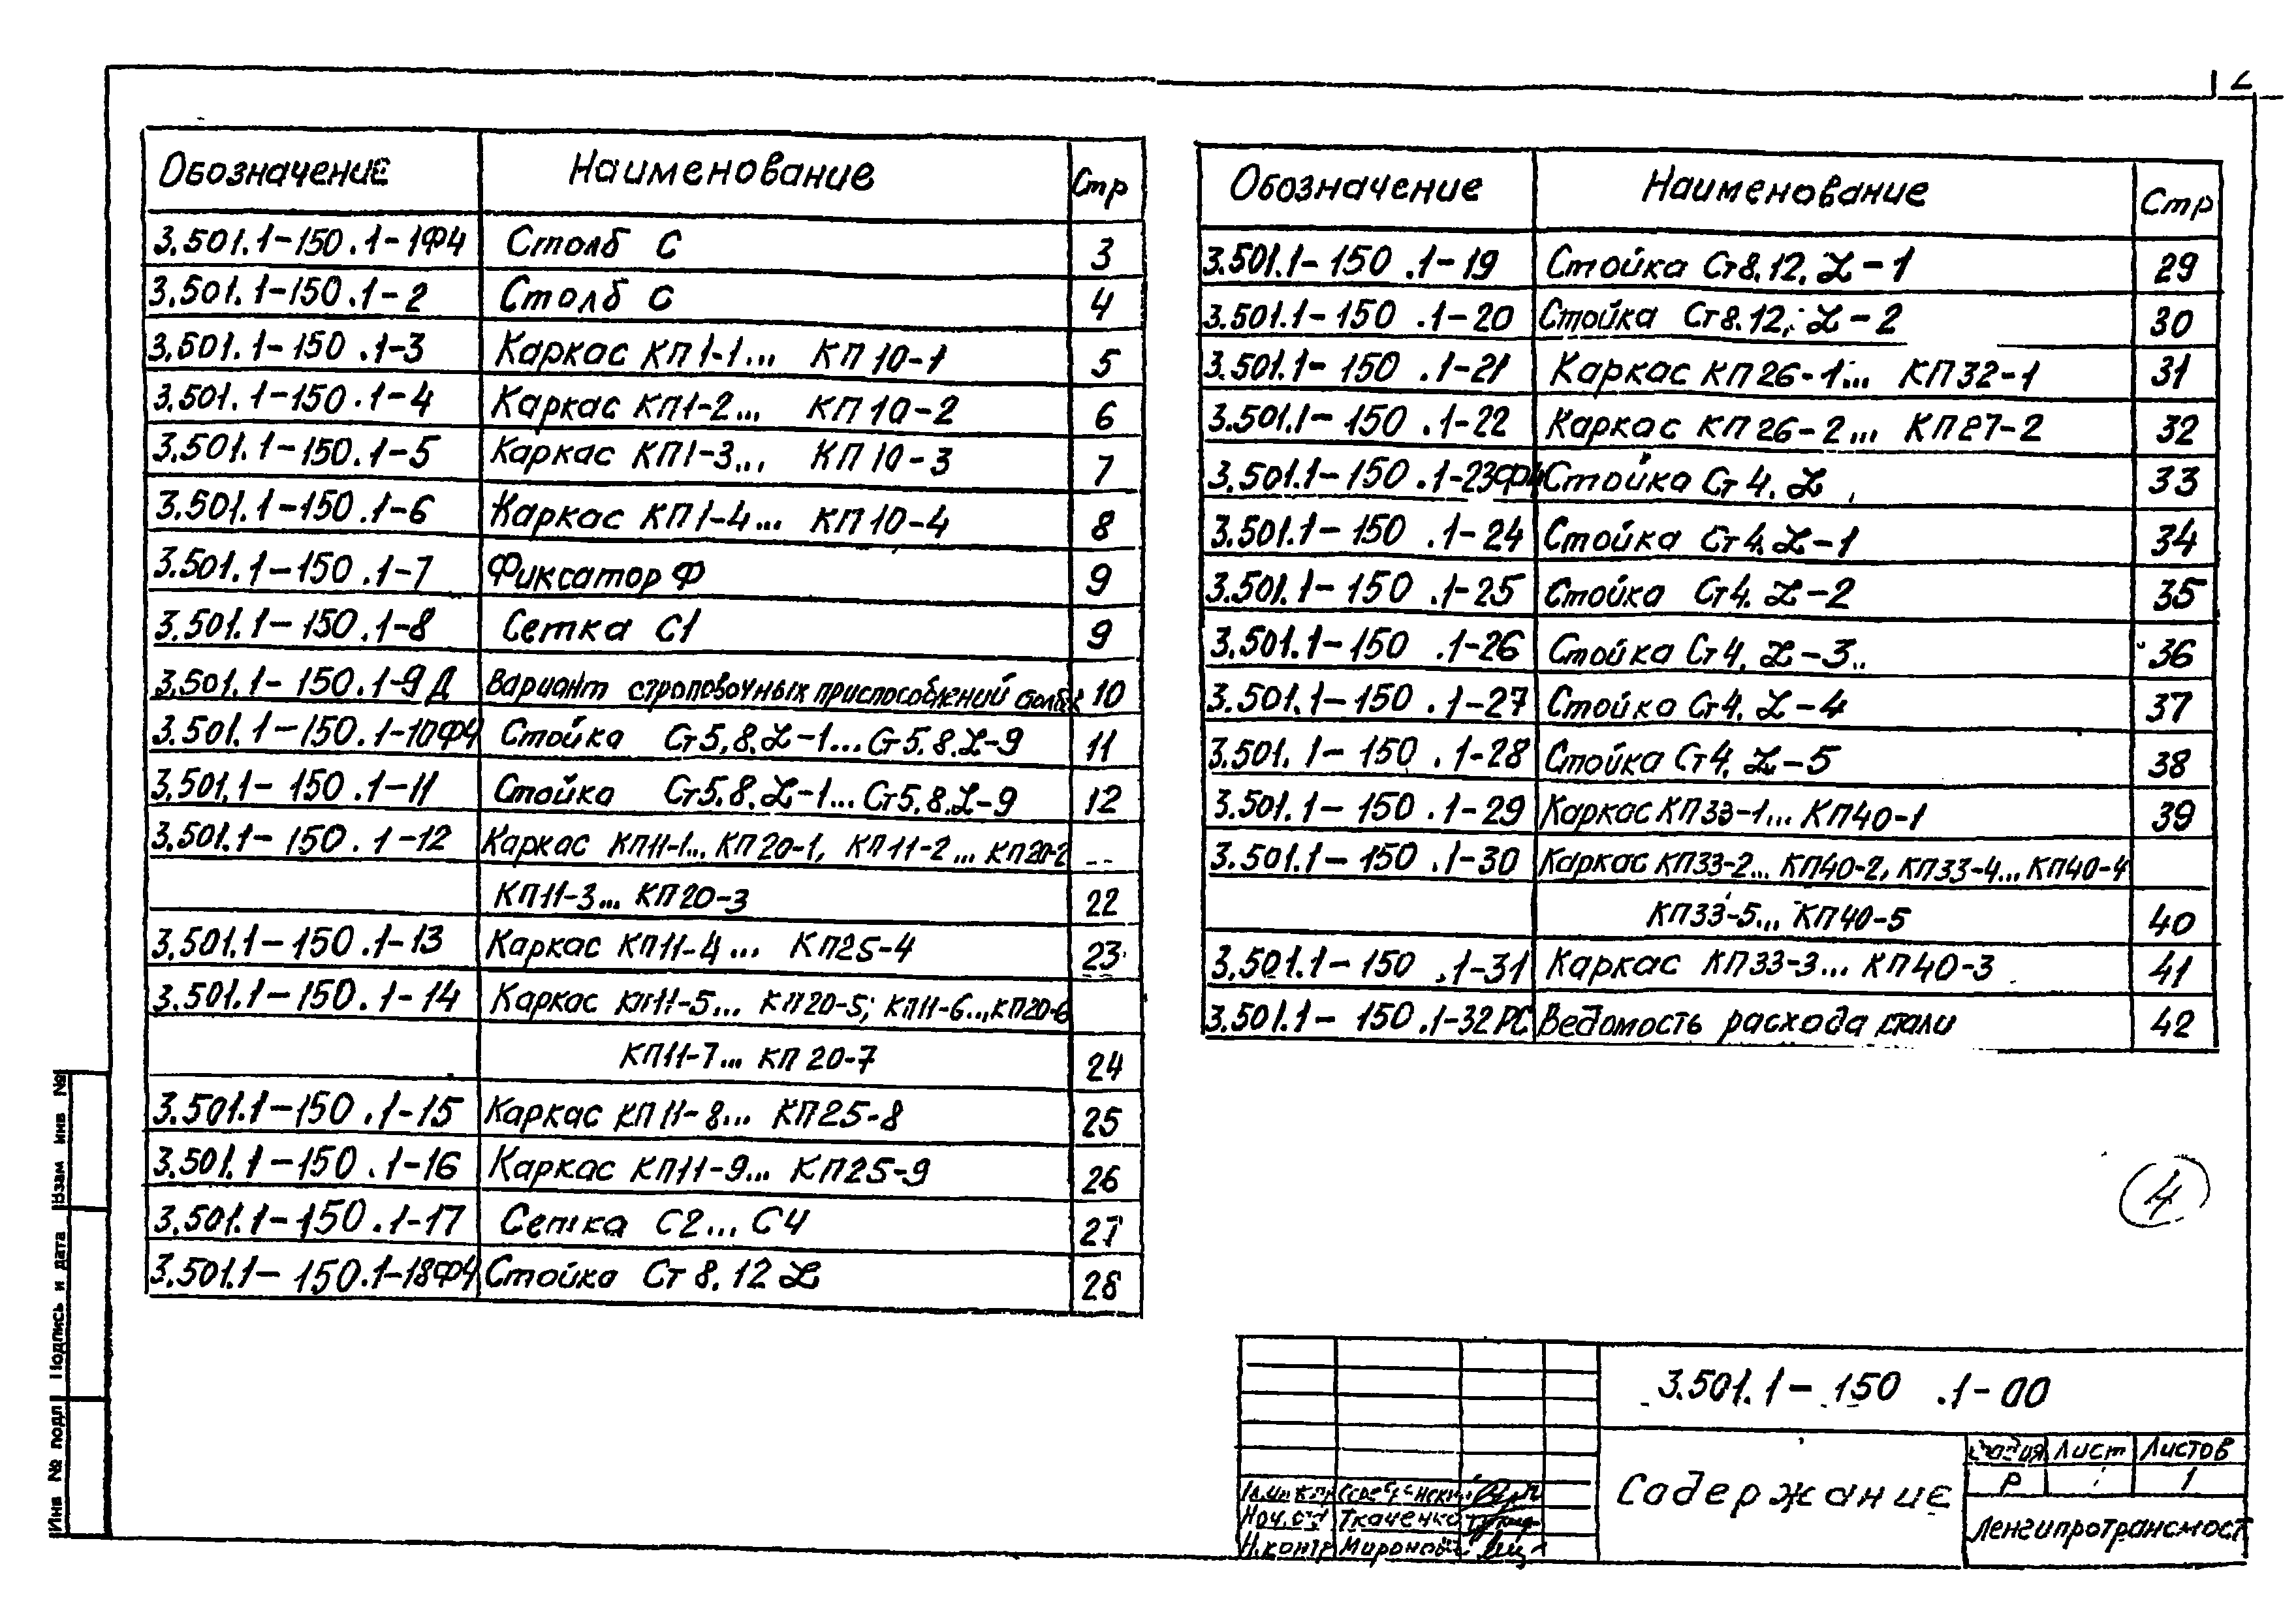 2
Обозначение Наименование Стр
3.501.1-150.1-1Ф4 Столб С 3
3.501.1-150.1-2 Столб С 4
3.501.1-150.1-3 Каркас КП1-1... КП10-1 5
3.501.1-150.1-4 Каркас КП1-2... КП10-2 6
3.501.1-150.1-5 Каркас КП1-3... КП10-3 7
3.501.1-150.1-6 Каркас КП1-4... КП10-4 8
3.501.1-150.1-7 Фиксатор Ф 9
3.501.1-150.1-8 Сетка С1 9
3.501.1-150.1-9Д Вариант строповочных приспособлений 10
3.501.1-150.1-10Ф4 Стойка Ст5.8.L-1...Ст5.8.L-9 11
3.501.1-150.1-11 Стойка Ст5.8.L-1...Ст5.8.L-9 12
3.501.1-150.1-12 Каркас КП11-1... КП20-1, КП11-2... КП20-2 --
КП11-3... КП20-3 22
3.501.1-150.1-13 Каркас КП11-4... КП25-4 23
3.501.1-150.1-14 Каркас КП11-5... КП20-5; КП11-6...КП20-6
КП11-7... КП20-7 24
3.501.1-150.1-15 Каркас КП11-8... КП25-8 25
3.501.1-150.1-16 Каркас КП11-9... КП25-9 26
3.501.1-150.1-17 Сетка С2... С4 27
3.501.1-150.1-18Ф4 Стойка Ст 8.12 L 28
Обозначение Наименование Стр
3.501.1-150.1-19 Стойка Ст8.12.L-1 29
3.501.1-150.1-20 Стойка Ст8.12.L-2 30
3.501.1-150.1-21 Каркас КП26-1... КП32-1 31
3.501.1-150.1-22 Каркас КП26-2... КП27-2 32
3.501.1-150.1-23Ф4 Стойка Ст4.L 33
3.501.1-150.1-24 Стойка Ст4.L-1 34
3.501.1-150.1-25 Стойка Ст4.L-2 35
3.501.1-150.1-26 Стойка Ст4.L-3 36
3.501.1-150.1-27 Стойка Ст4.L-4 37
3.501.1-150.1-28 Стойка Ст4.L-5 38
3.501.1-150.1-29 Каркас КП33-1... КП40-1 39
3.501.1-150.1-30 Каркас КП33-2... КП40-2, КП33-4... КП40-4
КП33-5... КП40-5 40
3.501.1-150.1-31 Каркас КП33-3... КП40-3 41
3.501.1-150.1-32РС Ведомость расхода стали 42
4
3.501.1-150.1-00
Содержание
Стадия Лист Листов
Р 1
Ленгипротрансмост
Нач.отд Ткаченко
Н.контр Миронова
Взам инв №
Подпись и дата
Инв № подл